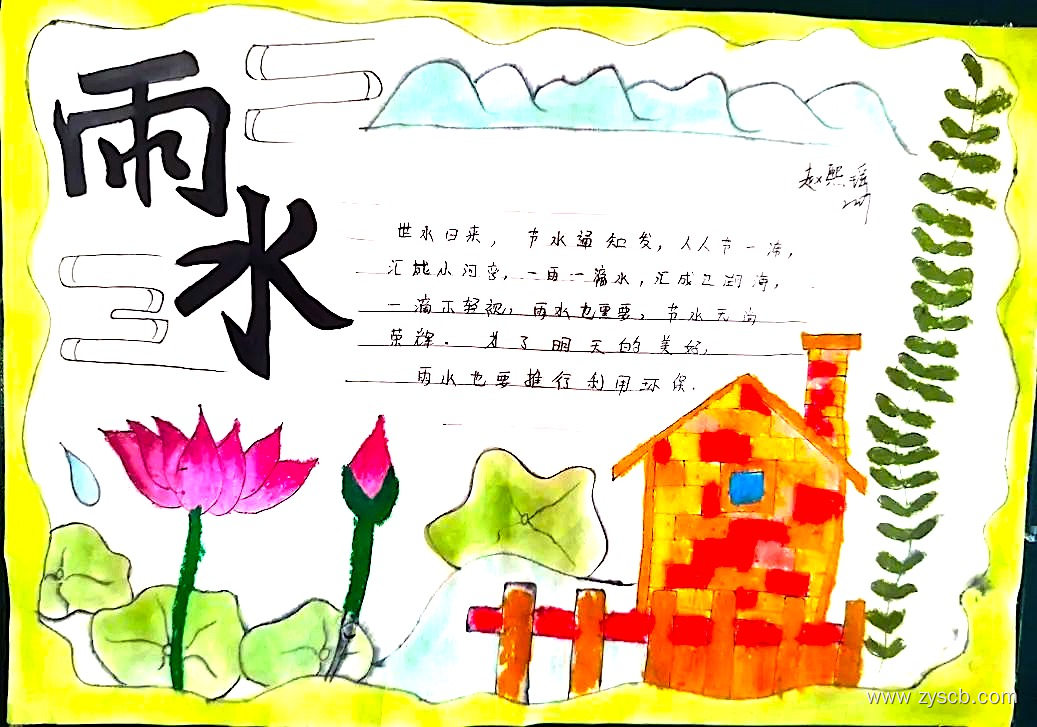 雨水
赵熙瑶
世水日来，节水通知发，人人节一滴，
汇成小河 一再一滴水，汇成
一滴不轻视，雨水也重要，节水无尚
荣辉．为了明天的美好，
雨水也要推行利用环保．
www.zyscb.com